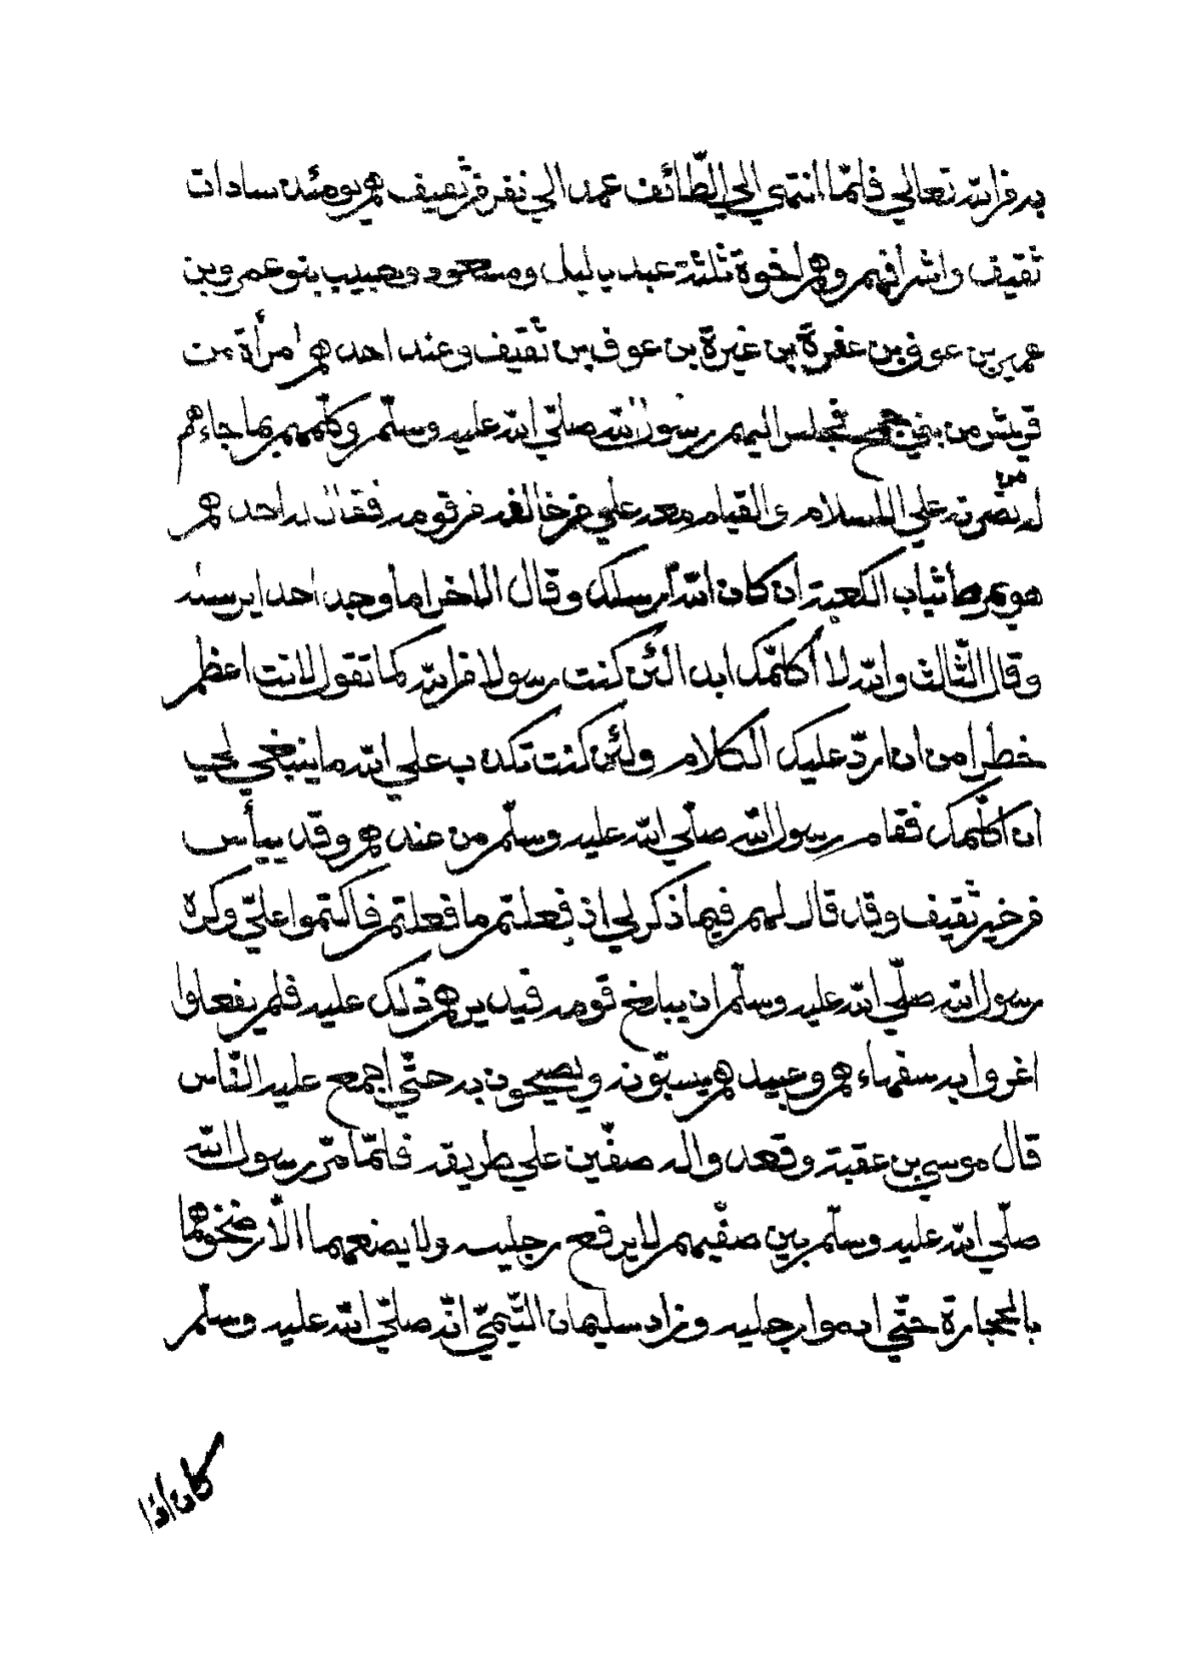 به من الله تعالى فلمّا انتهي الي الطّائف عمد الي نفر من ثقيف هم يومئذ سادات
ثقيف واشرافهم وهم اخوة ثلثة عبد ياليل ومسعود وحبيب بنو عمرو بن
عمير بن عوف بن عقرة بن غيرة بن عوف بن ثقيف وعند احدهم امرأة من
قريش من بني جمح فجلس اليهم رسول الله صلّي الله عليه وسلّم وكلّمهم بما جاءهم
له من نصرته علي الاسلام والقيام معه علي من خالفه من قومه فقال له احدهم
هو يمرط ثياب الكعبة ان كان الله ارسلك وقال الاخر اما وجد احدا يرسله
وقال الثّالث والله لا اكلّمك ابدا لئن كنت رسولا من الله كما تقول لانت اعظم
خطرا من ان اردّ عليك الكلام ولئن كنت تكذب علي الله ما ينبغي لي
ان اكلّمك فقام رسول الله صلّي الله عليه وسلّم من عندهم وقد ييأس
من خير ثقيف وقد قال لهم فيما ذكر لي اذ فعلتم ما فعلتم فاكتموا عليّ وكره
رسول الله صلّي الله عليه وسلّم ان يبلغ قومه فيديرهم ذلك عليه فلم يفعلوا
اغروا به سفهاءهم وعبيدهم يسبّونه ويصيحون به حتّي اجمع عليه النّاس
قال موسي بن عقبة وقعدوا له صفّين علي طريقه فلمّا مرّ رسول الله
صلّي الله عليه وسلّم بين صفّيهم لا يرفع رجليه ولا يضعهما الّا رضخوهما
بالحجارة حتّي ادموا رجليه وزاد سليمان التّيميّ انّه صلّي الله عليه وسلّم
كان اذا